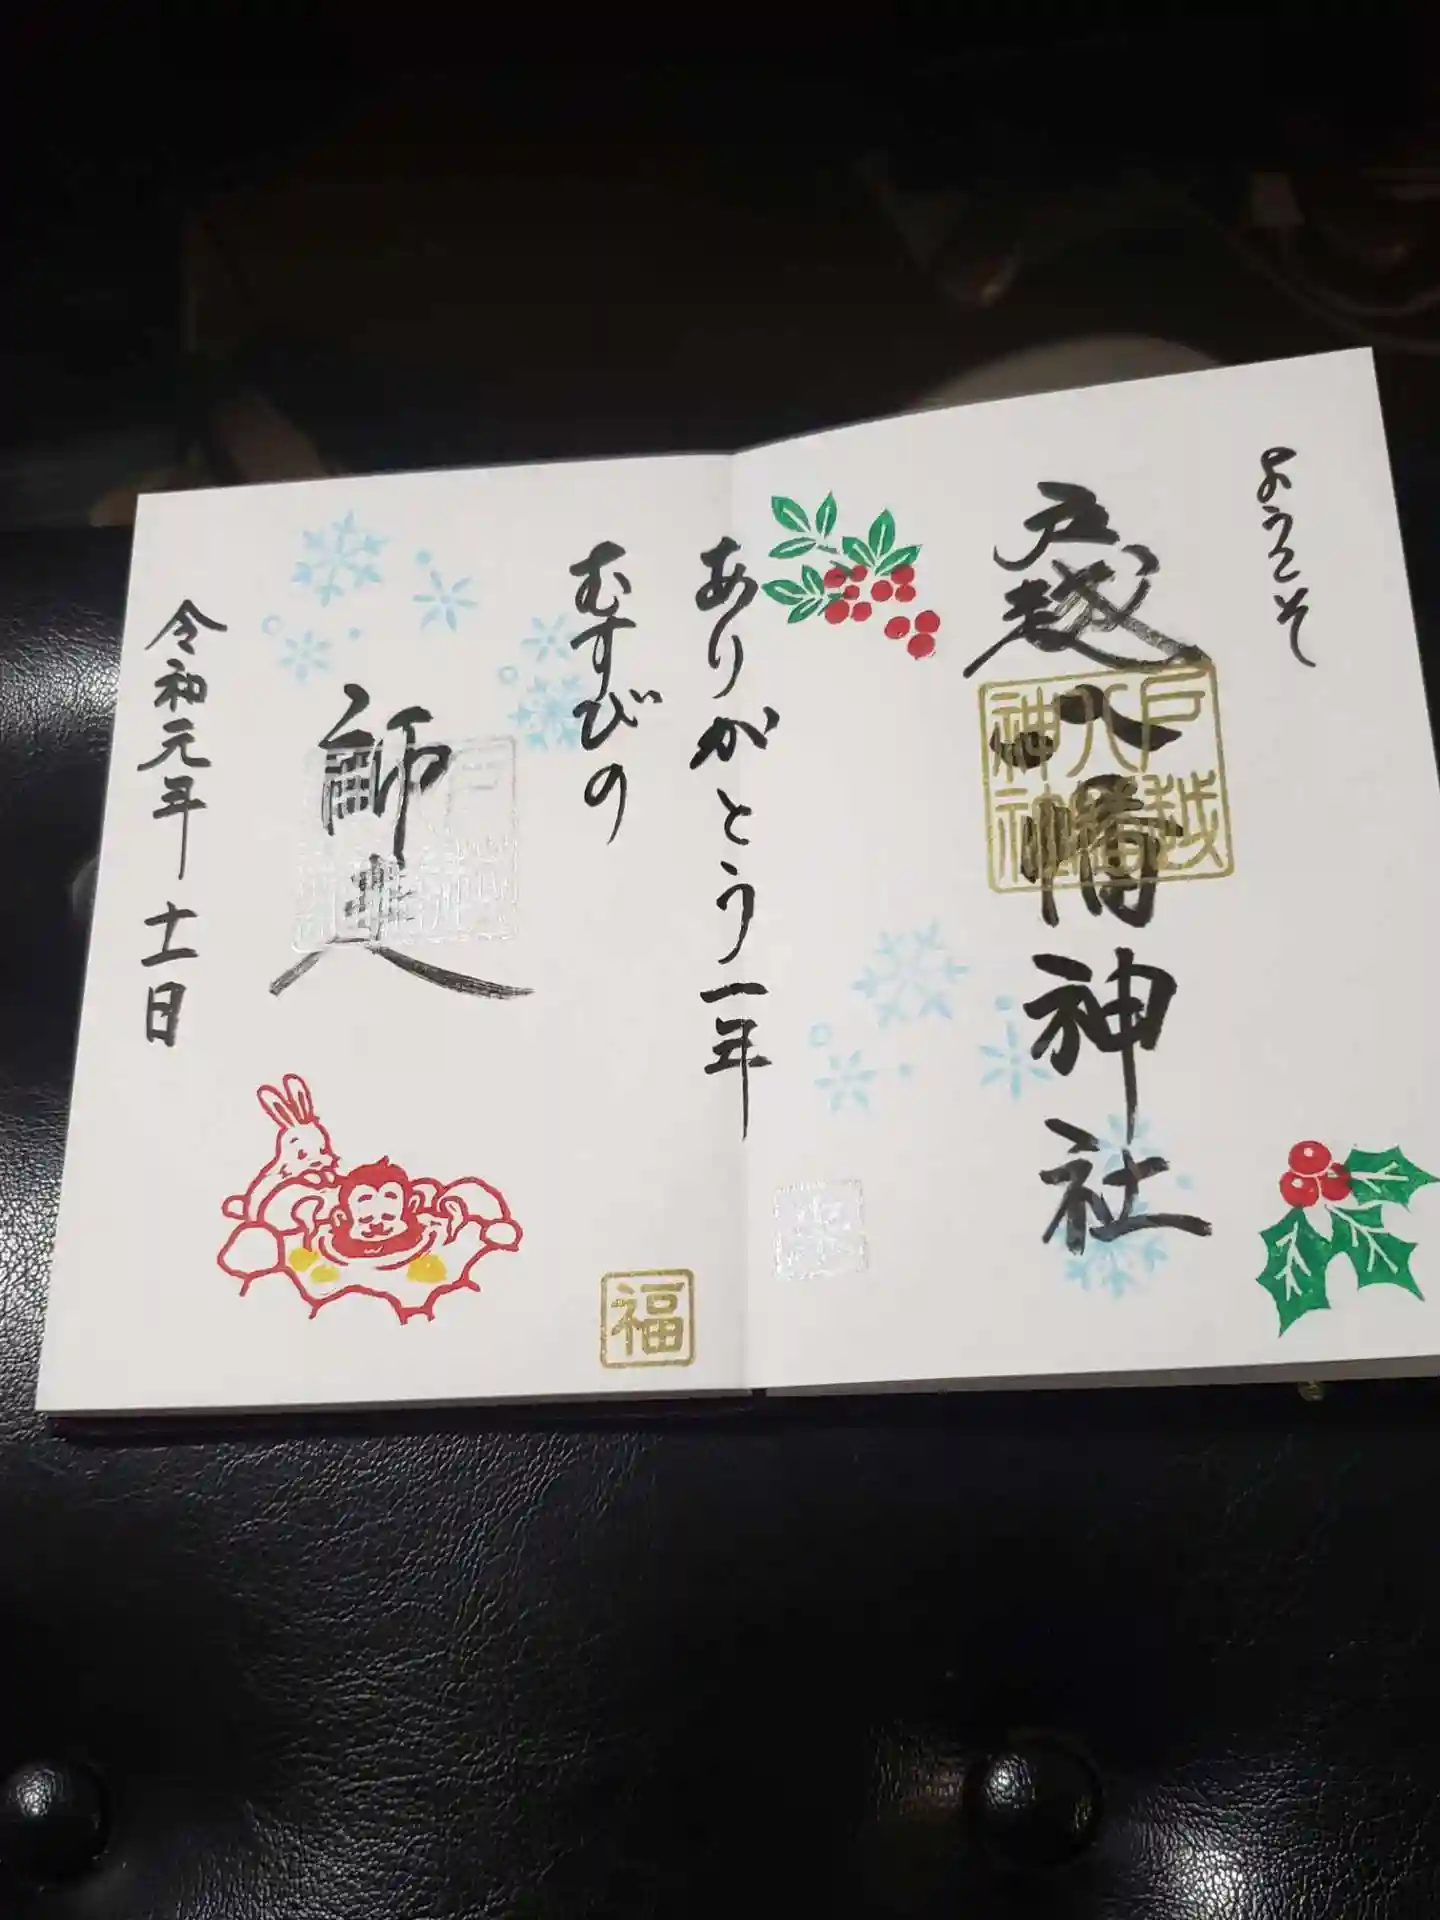 ようこそ
戸越八幡神社
戸越
八幡
神社
ありがとう一年
むすびの
師走
福
令和元年 十二日